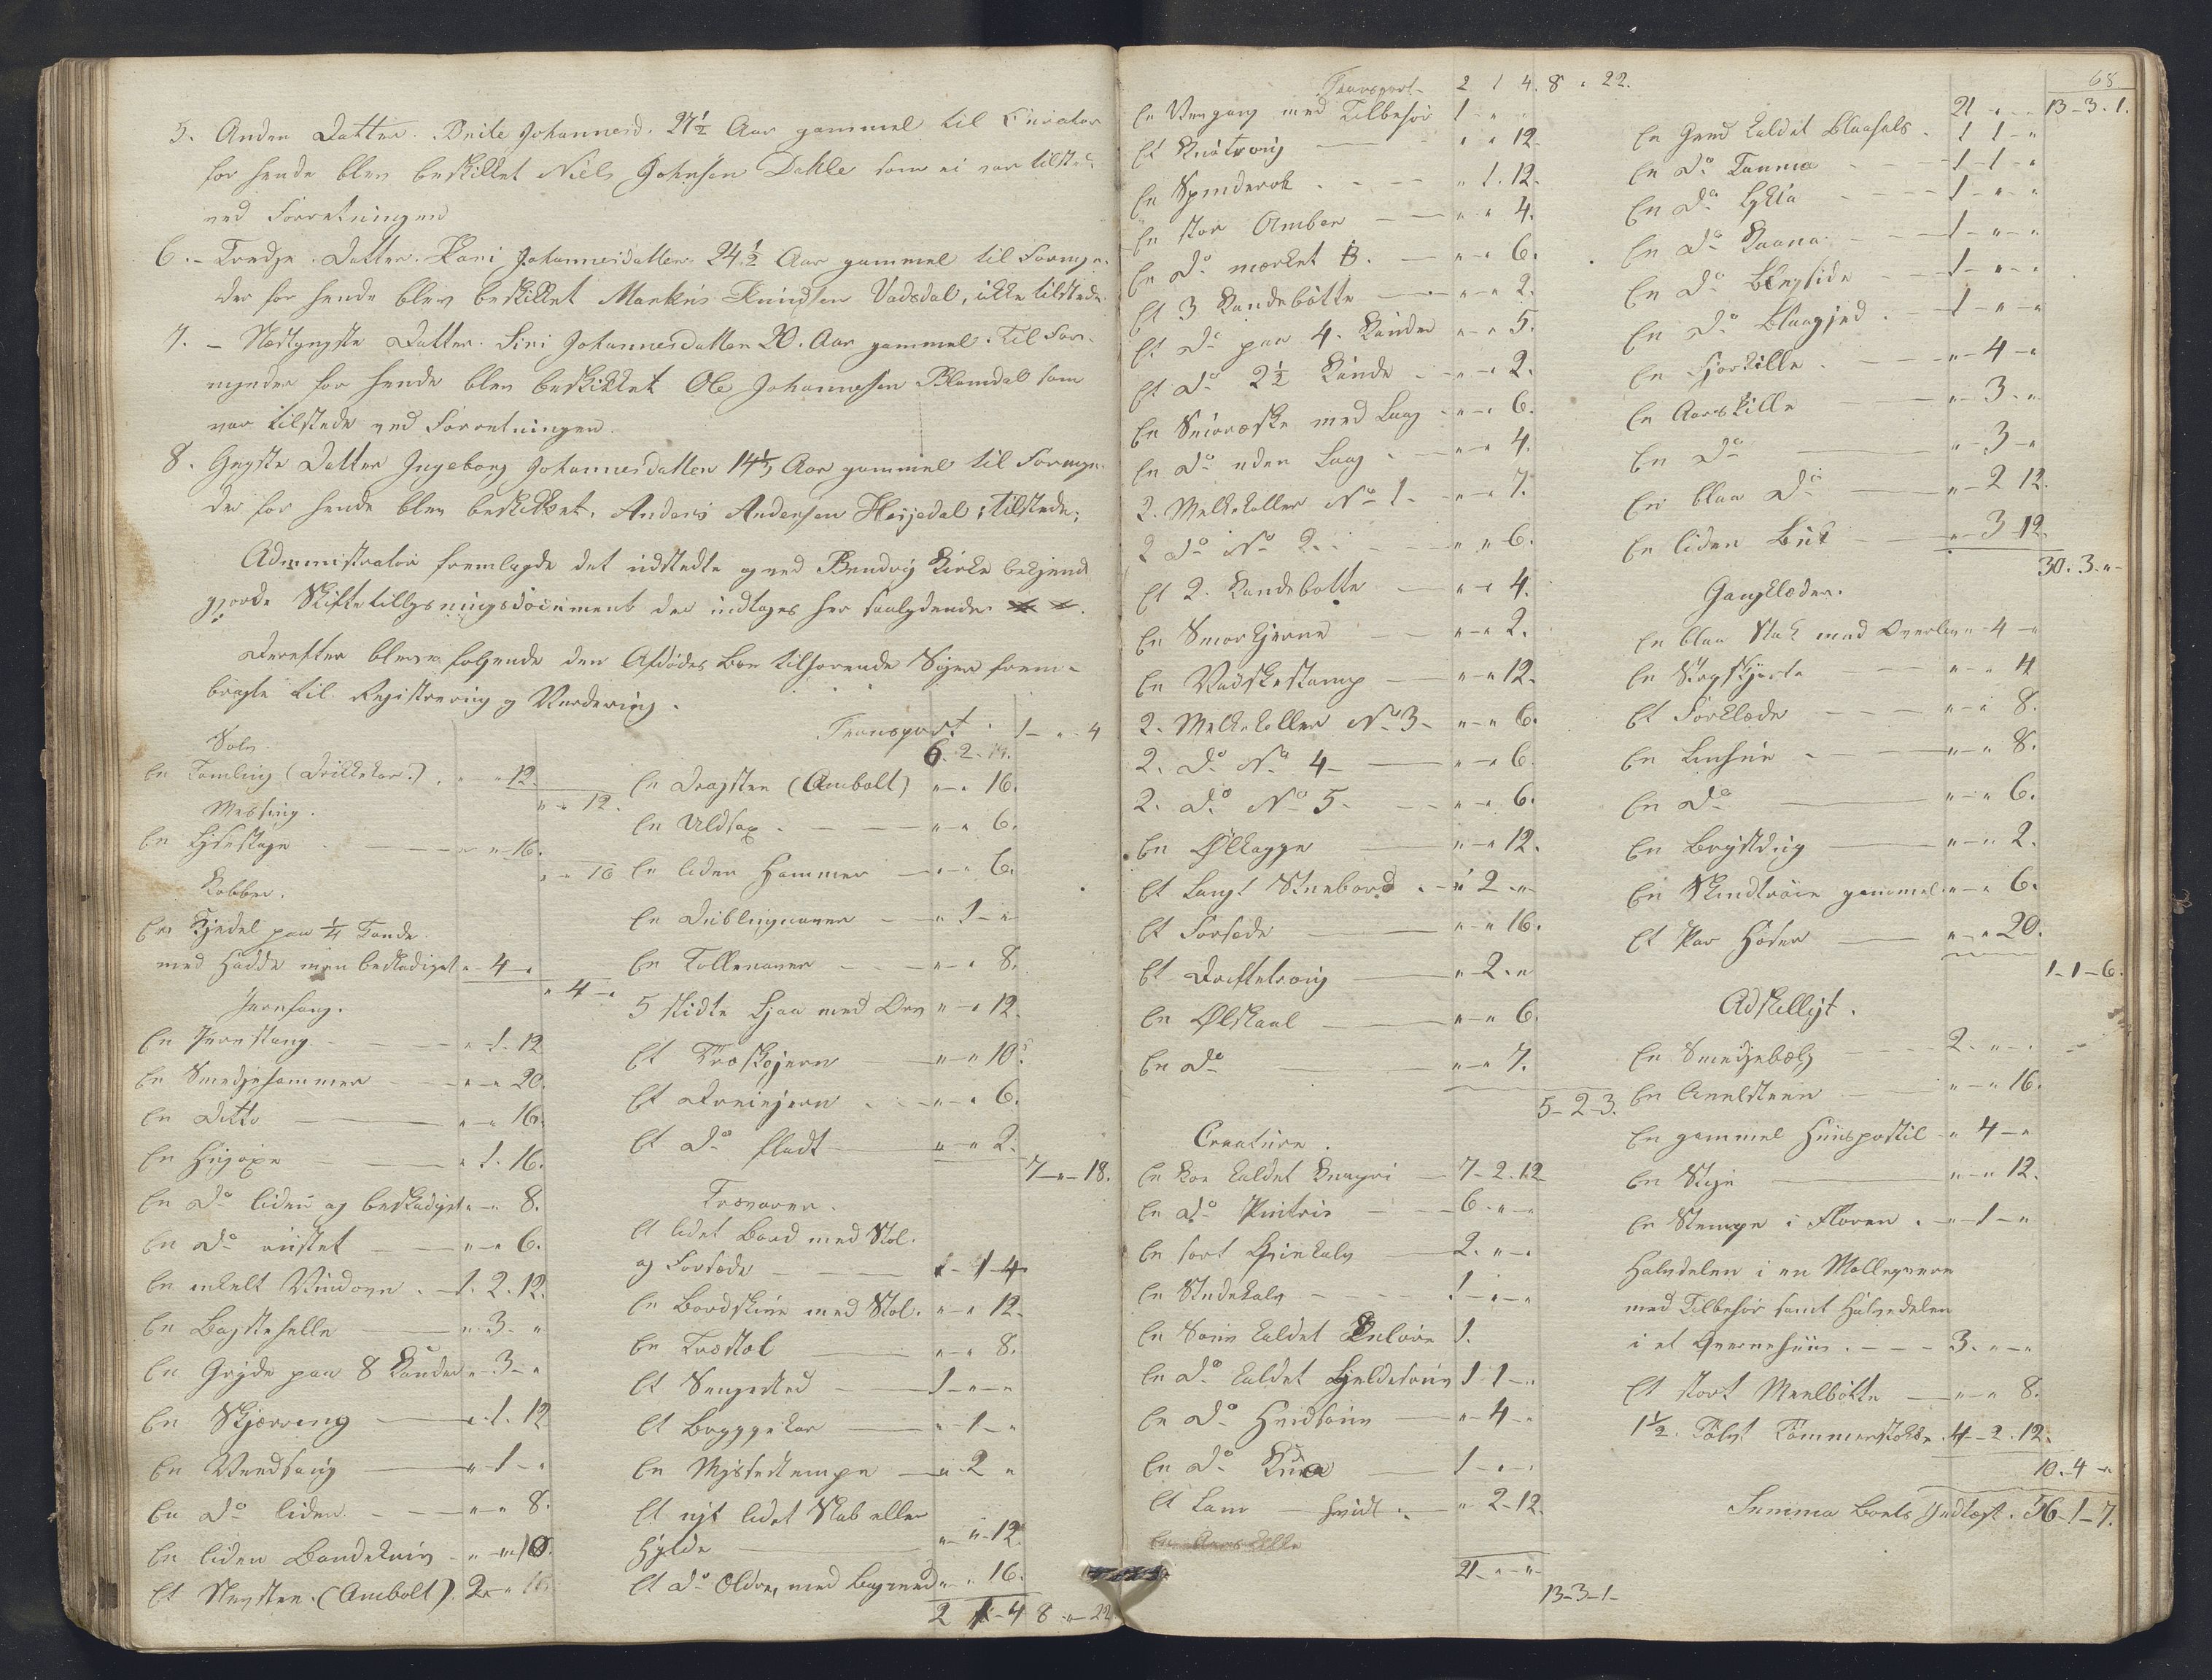 5. Anden Datter. Brite Johannesd. 27½ Aar gammel til Curator
for hende blev beskikket Niels Johnsen Dahle som ei var tilstede
ved Forretningen
6. - Tredje Datter. Kari Johannesdatter 24½ Aar gammel til Formyn-
der for hende blev beskikket Markus Knudsen Vadsdal, ikke tilstede.
7. - Næstyngste Datter. Siri Johannesdatter 20. Aar gammel. Til For-
mynder for hende blev beskikket Ole Johannessen Blomdal som
var tilstede ved Forretningen.
8. Yngste Datter Ingeborg Johannesdatter 14½ Aar gammel til Formyn-
der for hende blev beskikket. Anders Andersen Heijedal; tilstede;
Administrator fremlagde det udstedte og ved Bruvig Kirke bekjendt
gjorde Skiftetillysningsdocument der indtages her saalydende
Derefter bleve følgende den Afdødes Boe tilhørende Eyer frem-
bragte til Registrering og Vurdering.
Sølv.
En Tomling (Drikkekar.) . " - " 12.
" - " 12.
Messing.
En Lysestage " - " 16.
" - " 16
Kobber.
En Kjedel paa ¼ Tønde
med Hadde men beskadiget " - 4 - "
" 4 - "
Jernfang.
En Jernstang " 1. 12
En Smedjehammer " - " 20.
En Ditto " - " 16.
En Hugøxe " 1. 16.
En Do liden og beskadiget " - " 8.
En Do rustet " - " 6.
En enkelt Vindovn . - 1. 2. 12.
En Bagstehelle " 3. "
En Gryde paa 8 Kander " - 3 - "
En Skjæreng " 1. 12
En Vendsaug " - 1 - "
En Do liden " - " 8.
En liden Bandekniv " - " 10.
Et Stegsten. (Ambolt) 2 - " 16
Transport . 1 - " - 4
6. 2. 14.
En Dragsten (Ambolt) " - " 16.
En Uldsax " - " 6.
En liden Hammer " - " 6.
En Dublingnaver " 1 - "
En Tollenaver " - " 8.
5 slidte Ljaa med Orv " - " 12.
Et Træskjern " - " 10.
Et Dreiejern " - " 6.
Et Do fladt " - " 2.
7 - " - 18.
Trævarer.
Et lidet Bord med Stol.
og Forsæde 1 - 4
En Bordskive med Stol. " - " 12.
En Træstol " - " 8.
Et Sengested 1 - " - "
Et Bryggekar " - 1 - "
En Mysostempe " 2 "
Et nyt lidet Skab eller
Hylde " - " 12.
Et Do Ældre, med " - " 16.
2 1 - 4 8 - " - 22
Transport - 2 1 4. 8 " 22.
En Vevgang med Tilbehør 1 - " "
Et Knutroug " " 12.
En Spinderok " 1. 12.
En stor Amber " " 4.
En Do mærket B. " - " 6.
Et 3 Kandebøtte " - " 2.
Et Do paa 4. Kander " - " 5.
Et Do 2½ Kande " - " 2.
En Smøræske med Laag " - " 6.
En Do uden Laag " - " 4.
2. Melkekoller No 1. " - " 7.
2 Do No 2. " " 6.
Et 2. Kandebøtte " - " 4.
En Smørkjerne " - " 2.
En Vadskestamp " - " 12.
2. Melkekoller No 3 - " - " 6.
2. Do No 4 - " - " 6.
2. Do No 5. " - " 6.
En Ølkagge " - " 12.
Et Langt Stuebord " 2 - "
Et Forsæde " - " 16.
Et Drøftetroug " 2. "
En Ølskaal " - " 6.
En Do " - " 7.
5 - 2 - 3.
Creature.
En Koe kaldet Krugri 7 - 2. 12
En Do Pintris 6. " - "
En sort Qviekalv 2. " - "
En Studekalv 1 - " - "
En Souv kaldet Kuløre 1.
En Do kaldet Gjeldesouv 1 1 - "
En Do Hvidsouv " - 4 - "
En Do Krua 1 - " - "
Et Lam - hvidt. " 2 - 12.
21 - " - "
13 - 3 - 1 -
68
21 " - " 13 - 3. 1.
En Gjed kaldet Blaahals. 1 1 - "
En Do Tamma 1 - 1 - "
En Do Lykla 1 - " - "
En Do Kaana 1 - " - "
En Do Blegside 1 - " - "
En Do Blaagjed. 1 - " - "
En Fjorkille. " - 4 - "
En Aarskille " 3 - "
En Do " - 3 - "
En blaa Do " - 2 12.
En liden Buk " - 3 12.
30. 3. " -
Gangklæder.
En blaa Stak med Overliv " - 4 - "
En Strgskjorte " - " 4
Et Forklæde " - " 8.
En Linhue " - " 8.
En Do " - " 6.
En Brystdug " - " 2.
En Skindtrøie gammel " - " 6.
Et Par Hoser " - " 20.
1 - 1 - 6.
Adskilligt.
En Smedjebælg 2. " - "
En Qvælsteen " - " 16.
En gammel Huuspostil " 4 - "
En Stige " - " 12.
En Stempe i Floren . " - 1 - "
Halvdelen i en Mølleqvern
med Tilbehør samt Halvdelen
i et Qvernehuus. - - - 3. " - "
Et stort Meelbøtte " - " 8.
1½. Tolvt Tømmerstokke. 4 - 2. 12.
10. - 4 - "
Summa Boets Indtægt. 56 - 1 - 7.